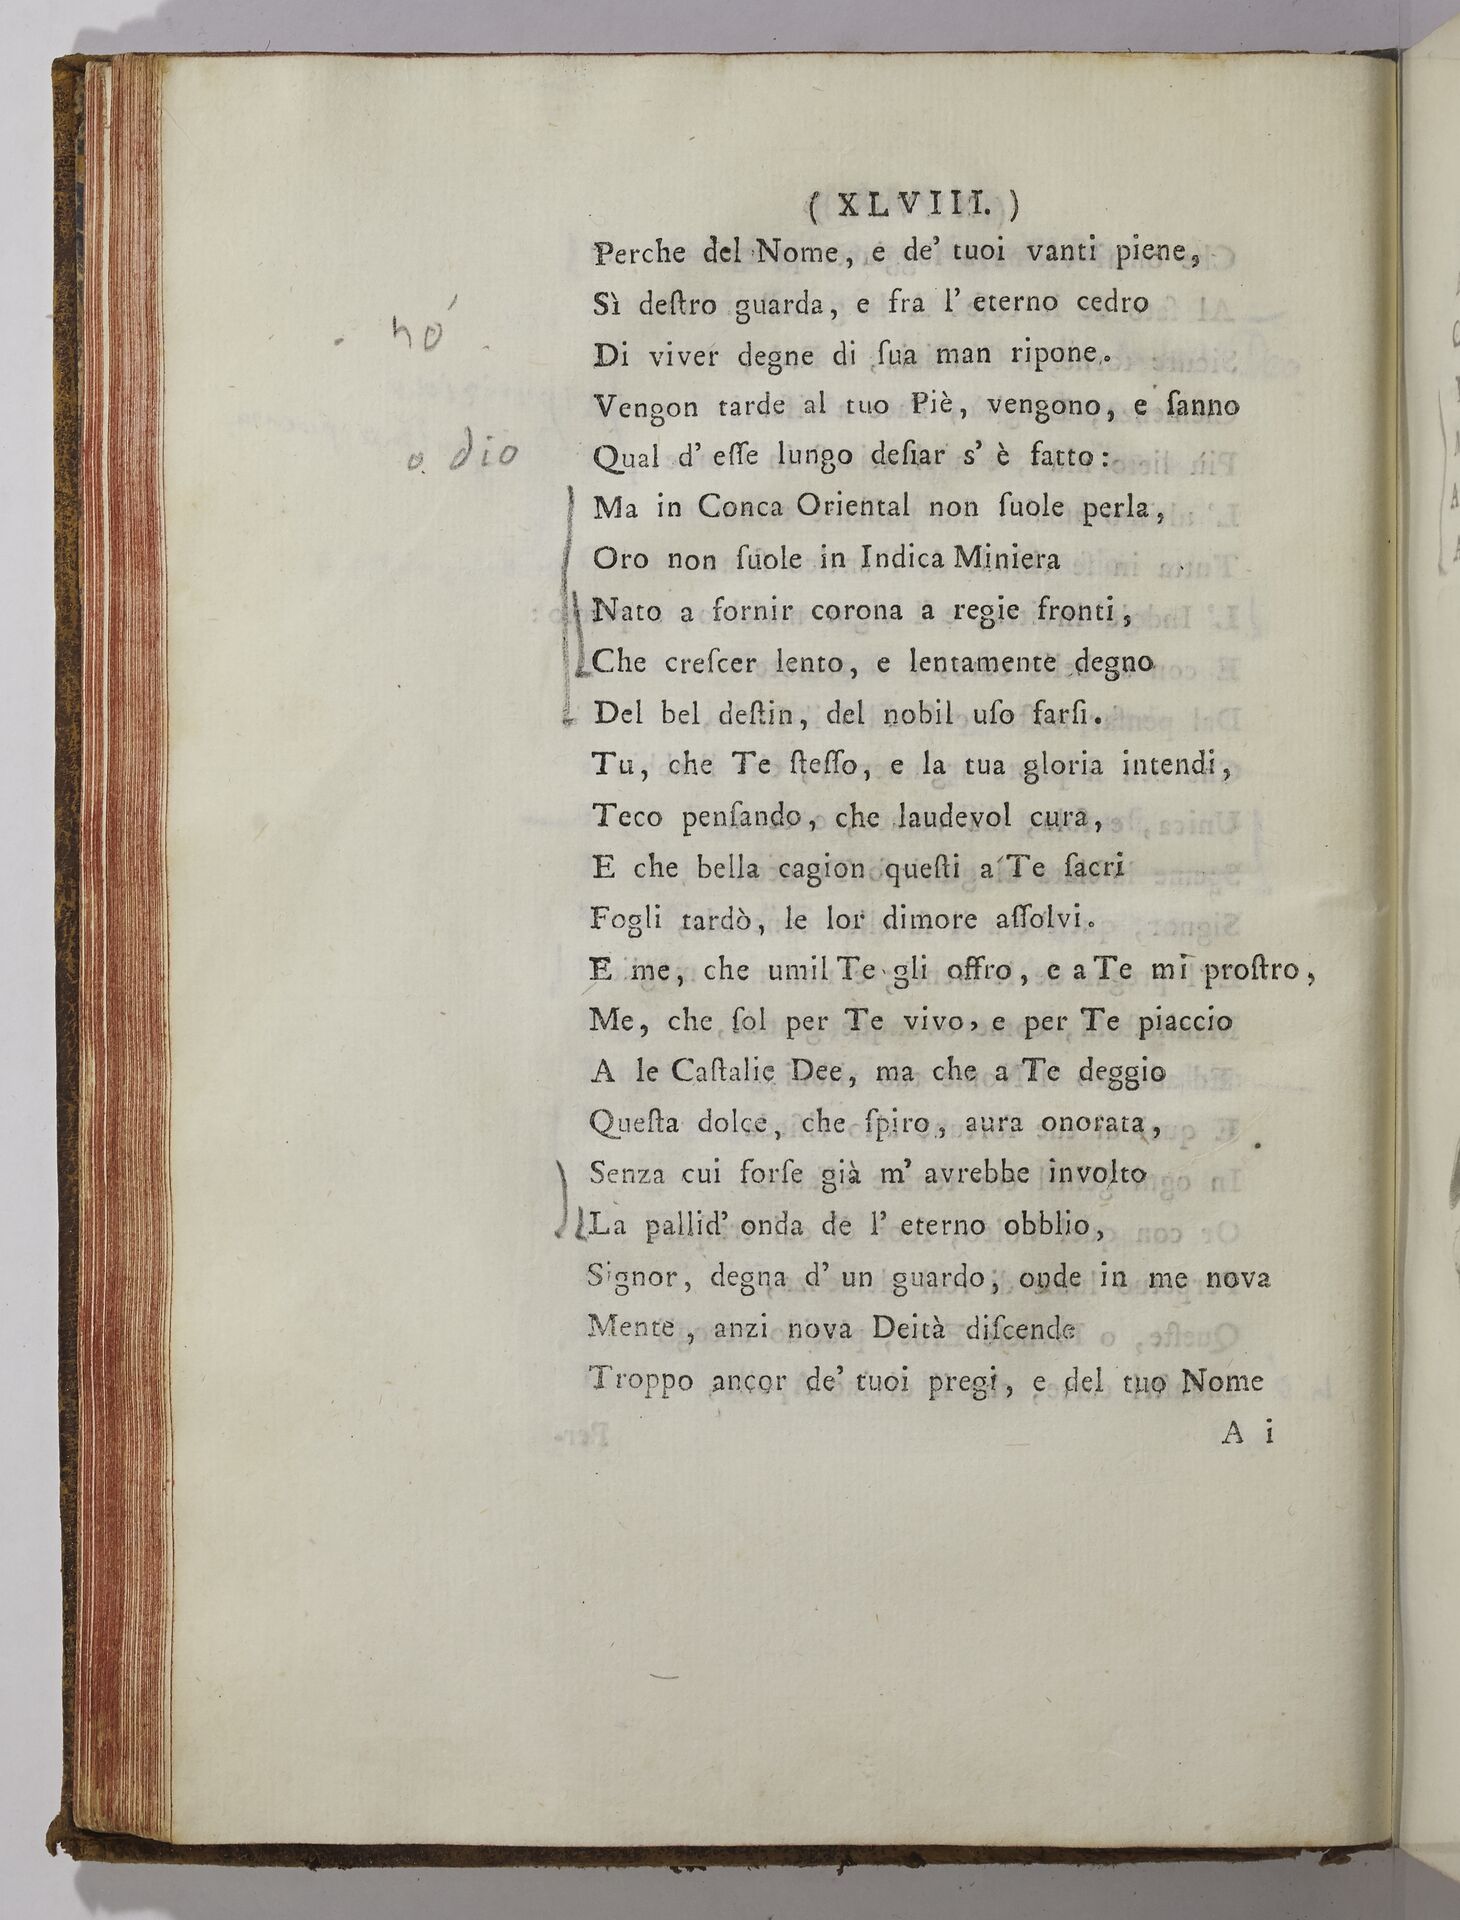 ( XLVIII. )
Perche del Nome, e de' tuoi vanti piene,
Sì deſtro guarda, e fra l' eterno cedro
. nó .
Di viver degne di ſua man ripone.
Vengon tarde al tuo Piè, vengono, e ſanno
o dio
Qual d' eſſe lungo deſiar s' è fatto:
Ma in Conca Oriental non ſuole perla,
Oro non ſuole in Indica Miniera
Nato a fornir corona a regie fronti,
Che creſcer lento, e lentamente degno
Del bel deſtin, del nobil uſo farſi.
Tu, che Te ſteſſo, e la tua gloria intendi,
Teco penſando, che laudevol cura,
E che bella cagion queſti a Te ſacri
Fogli tardò, le lor dimore aſſolvi.
E me, che umil Te gli offro, e a Te mi proſtro,
Me, che ſol per Te vivo, e per Te piaccio
A le Caſtalie Dee, ma che a Te deggio
Queſta dolce, che ſpiro, aura onorata,
Senza cui forſe già m' avrebbe involto
La pallid' onda de l' eterno obblio,
Signor, degna d' un guardo, onde in me nova
Mente, anzi nova Deità diſcende
Troppo ancor de' tuoi pregi, e del tuo Nome
A i